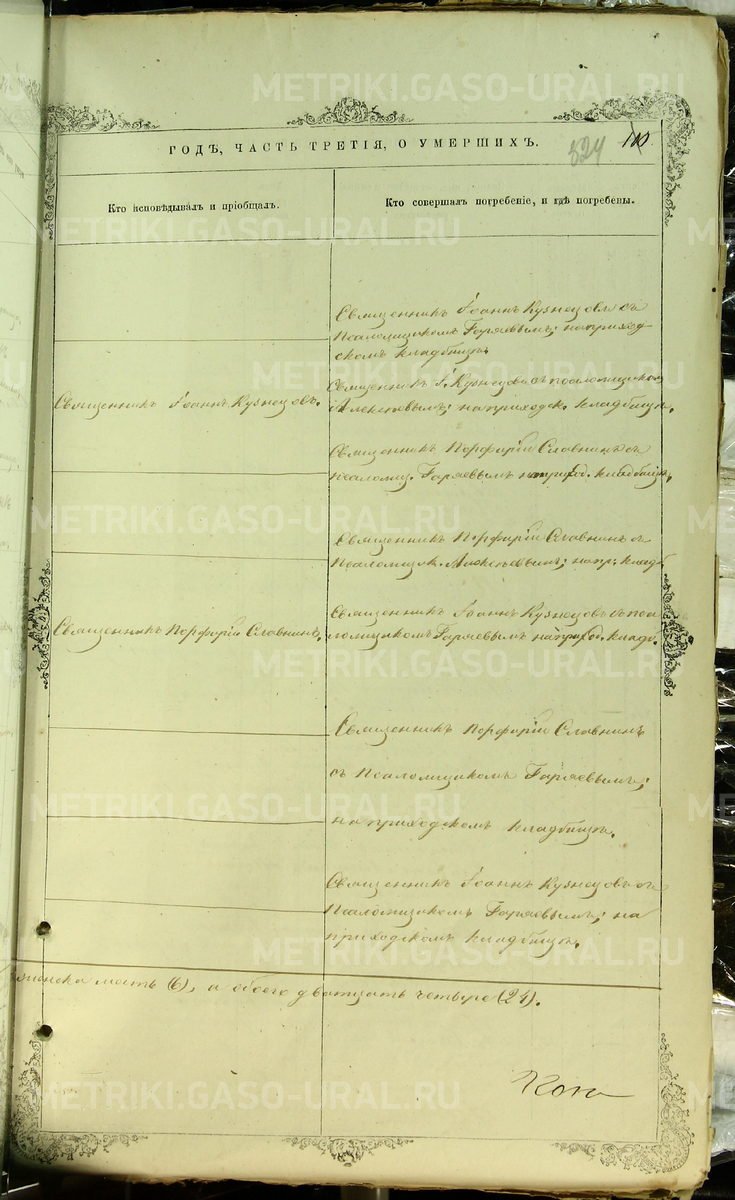 ГОДЪ, ЧАСТЬ ТРЕТІЯ, О УМЕРШИХЪ.
324 110.
Кто исповѣдывалъ и пріобщалъ.
Кто совершалъ погребеніе, и гдѣ погребены.
Священникъ Іоаннъ Кузнецовъ съ
Псаломщикомъ Горяевымъ; на приход-
скомъ кладбищѣ.
Священникъ І. Кузнецовъ съ псаломщиком
Алексѣевымъ; на приходск. кладбищѣ.
Священникъ Іоаннъ Кузнецовъ.
Священникъ Порфирій Славнинъ съ
псаломщ. Горяевымъ на приход. кладбищѣ.
Священникъ Порфирій Славнинъ съ
Псаломщик. Алексѣевымъ; на пр. кладб
Священникъ Іоаннъ Кузнецовъ съ пса-
ломщикомъ Горяевымъ на приход. кладб.
Священникъ Порфирій Славнинъ.
Священникъ Порфирій Славнинъ
съ Псаломщикомъ Горяевымъ;
на приходскомъ кладбищѣ.
Священникъ Іоаннъ Кузнецовъ съ
Псаломщикомъ Горяевымъ; на
приходскомъ кладбищѣ.
женска шесть (6), а обоего двадцать четыре (24).
METRIKI.GASO-URAL.RU